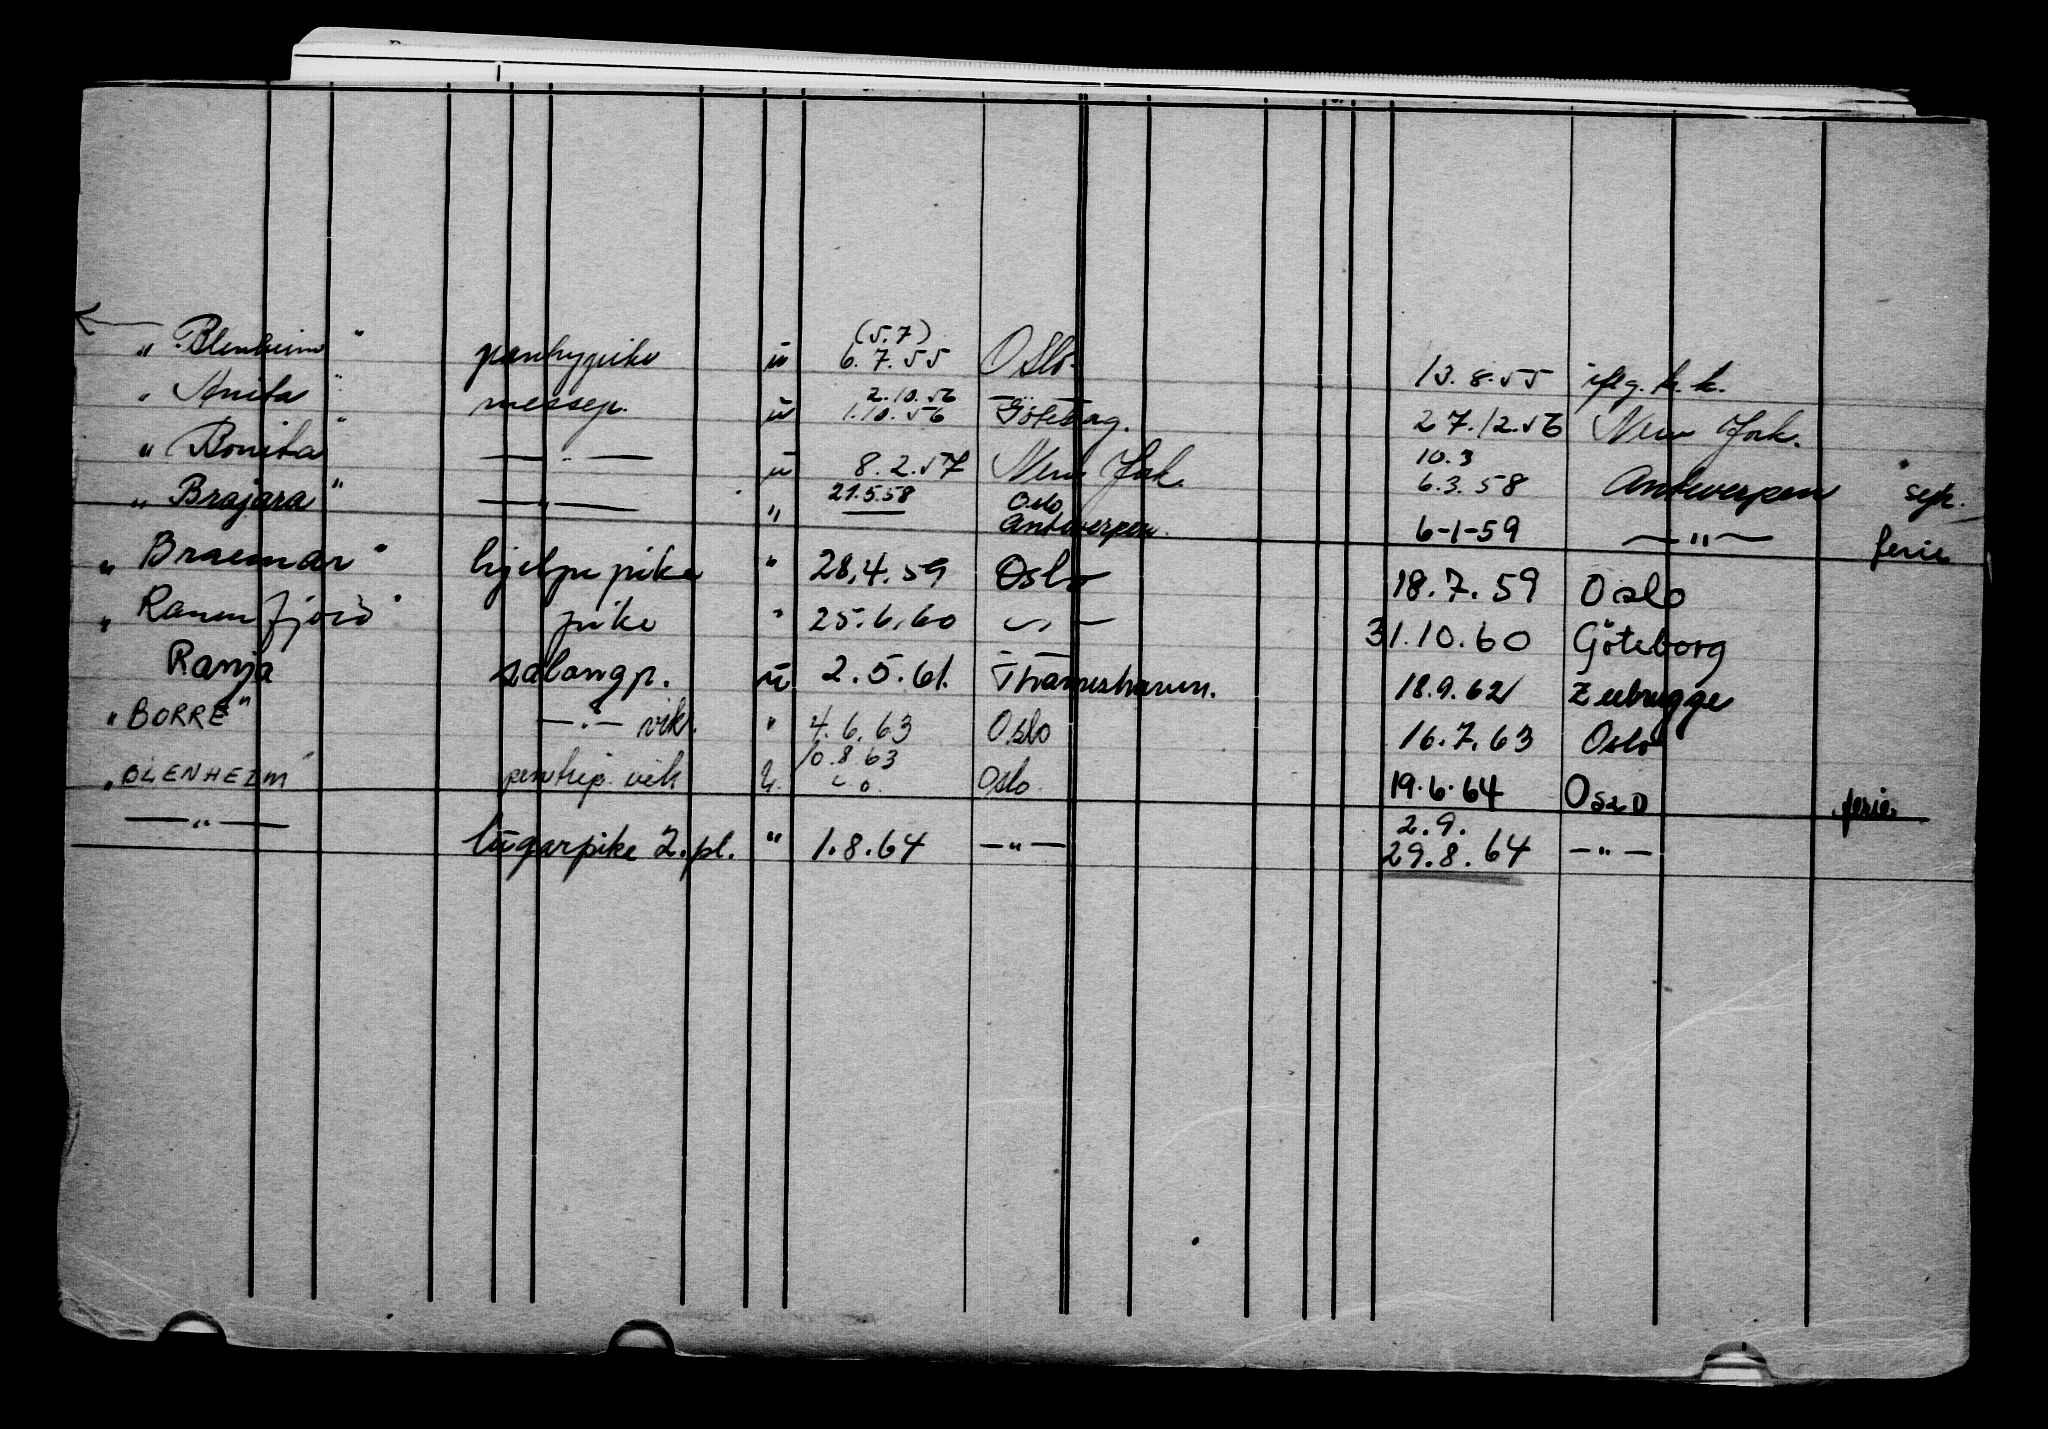 (5.7)
" Blenheim " pantrypike u 6.7.55 Oslo. 13.8.55 iflg. k.k.
2.10.56
" Anita " messep. u 1.10.56 Göteborg. 27.12.56 New York.
10.3
" Bonita " — " — u 8.2.57 New York. 6.3.58 Antwerpen syk.
21.5.58 Oslo
" Brajara " — " — " Antwerpen. 6-1-59 — " — ferie
" Braemar " hjelpepike " 28.4.59 Oslo 18.7.59 Oslo
" Ranenfjord " pike " 25.6.60 — " — 31.10.60 Göteborg
Ranja salongp. u 2.5.61. Thamshavn. 18.9.62 Zeebrugge
" BORRE " — " — vik. " 4.6.63 Oslo 16.7.63 Oslo
10.8.63
" BLENHEIM " pentrip. vik u. Oslo. 19.6.64 OSLO ferie.
2.9.
— " — lugarpike 2.pl. " 1.8.64 — " — 29.8.64 — " —